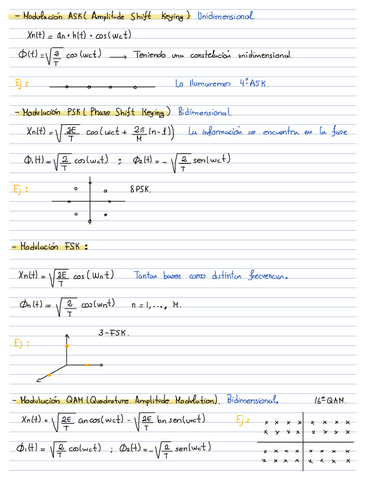 - Modulación ASK (Amplitude Shift Keying) Unidimensional.
Xn(t) = an·h(t)·cos(wct)
Φ(t) = √(2/T) cos(wct) → Teniendo una constelación unidimensional.
Ej: Lo llamaremos 4-ASK.
- Modulación PSK (Phase Shift Keying) Bidimensional.
Xn(t) = √(2E/T) cos(wct + 2π/M (n-1)) La información se encuentra en la fase
Φ₁(t) = √(2/T) cos(wct) ; Φ₂(t) = -√(2/T) sen(wct)
Ej: 8PSK.
- Modulación FSK:
Xn(t) = √(2E/T) cos(Wnt) Tantas bases como distintas frecuencias.
Φn(t) = √(2/T) cos(wnt) n = 1, ..., M.
3-FSK.
Ej:
- Modulación QAM (Quadrature Amplitude Modulation). Bidimensional. 16-QAM.
Xn(t) = √(2E/T) an cos(wct) - √(2E/T) bn sen(wct) Ej:
Φ₁(t) = √(2/T) cos(wct) ; Φ₂(t) = -√(2/T) sen(wct)